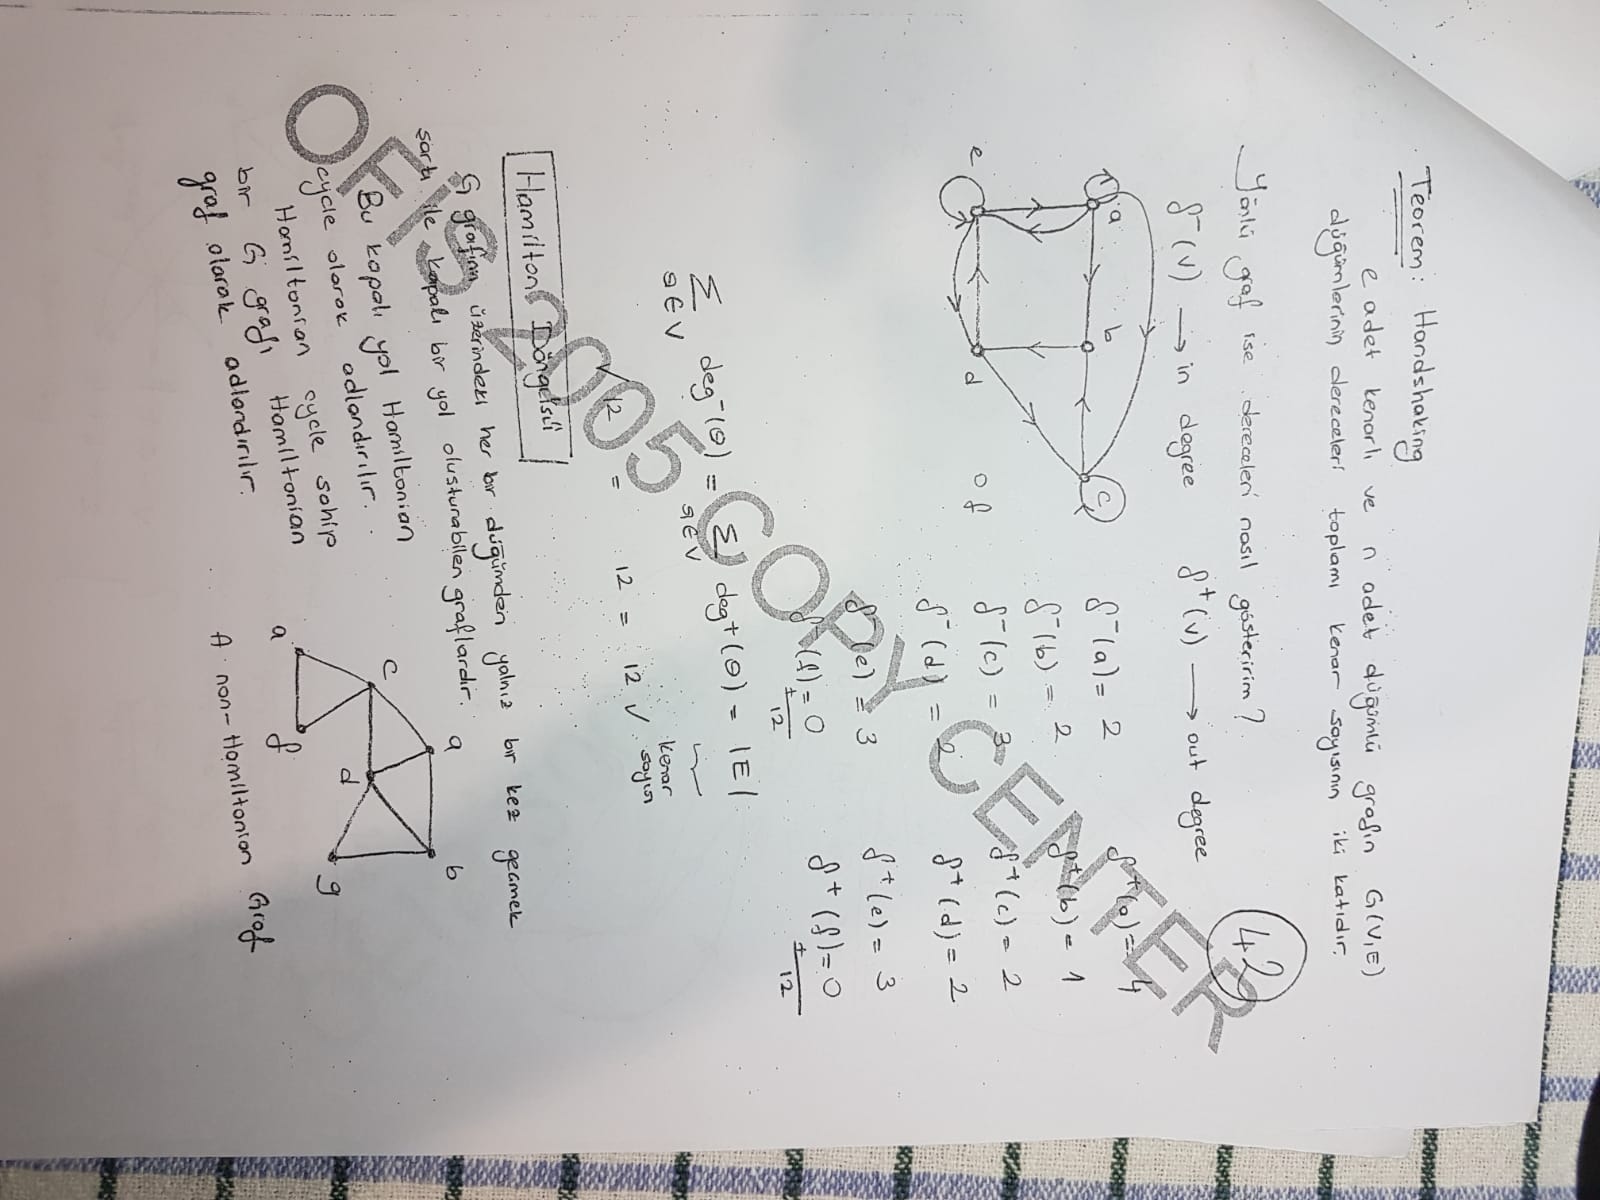 Teorem: Handshaking
e adet kenarlı ve n adet düğümlü grafın G(V,E)
düğümlerinin dereceleri toplamı kenar sayısının iki katıdır.
42
Yönlü graf ise dereceleri nasıl gösteririm?
δ⁻(v) → in degree δ⁺(v) → out degree
a b c
e d f
δ⁻(a) = 2 δ⁺(a) = 4
δ⁻(b) = 2 δ⁺(b) = 1
δ⁻(c) = 3 δ⁺(c) = 2
δ⁻(d) = 2 δ⁺(d) = 2
δ⁻(e) = 3 δ⁺(e) = 3
δ⁻(f) = 0 δ⁺(f) = 0
+ 12 + 12
∑ deg⁻(ϑ) = ∑ deg⁺(ϑ) = |E|
ϑ∈V ϑ∈V
kenar
sayısı
✓ 12 = 12 = 12 ✓
Hamilton Döngüsü
G grafının üzerindeki her bir düğümden yalnız bir kez geçmek
şartı ile kapalı bir yol oluşturabilen graflardır.
Bu kapalı yol Hamiltonian
cycle olarak adlandırılır.
Hamiltonian cycle sahip
bir G grafı Hamiltonian
graf olarak adlandırılır.
a b
c d g
a f
A non-Hamiltonian Graf
OFİS 2005 COPY CENTER